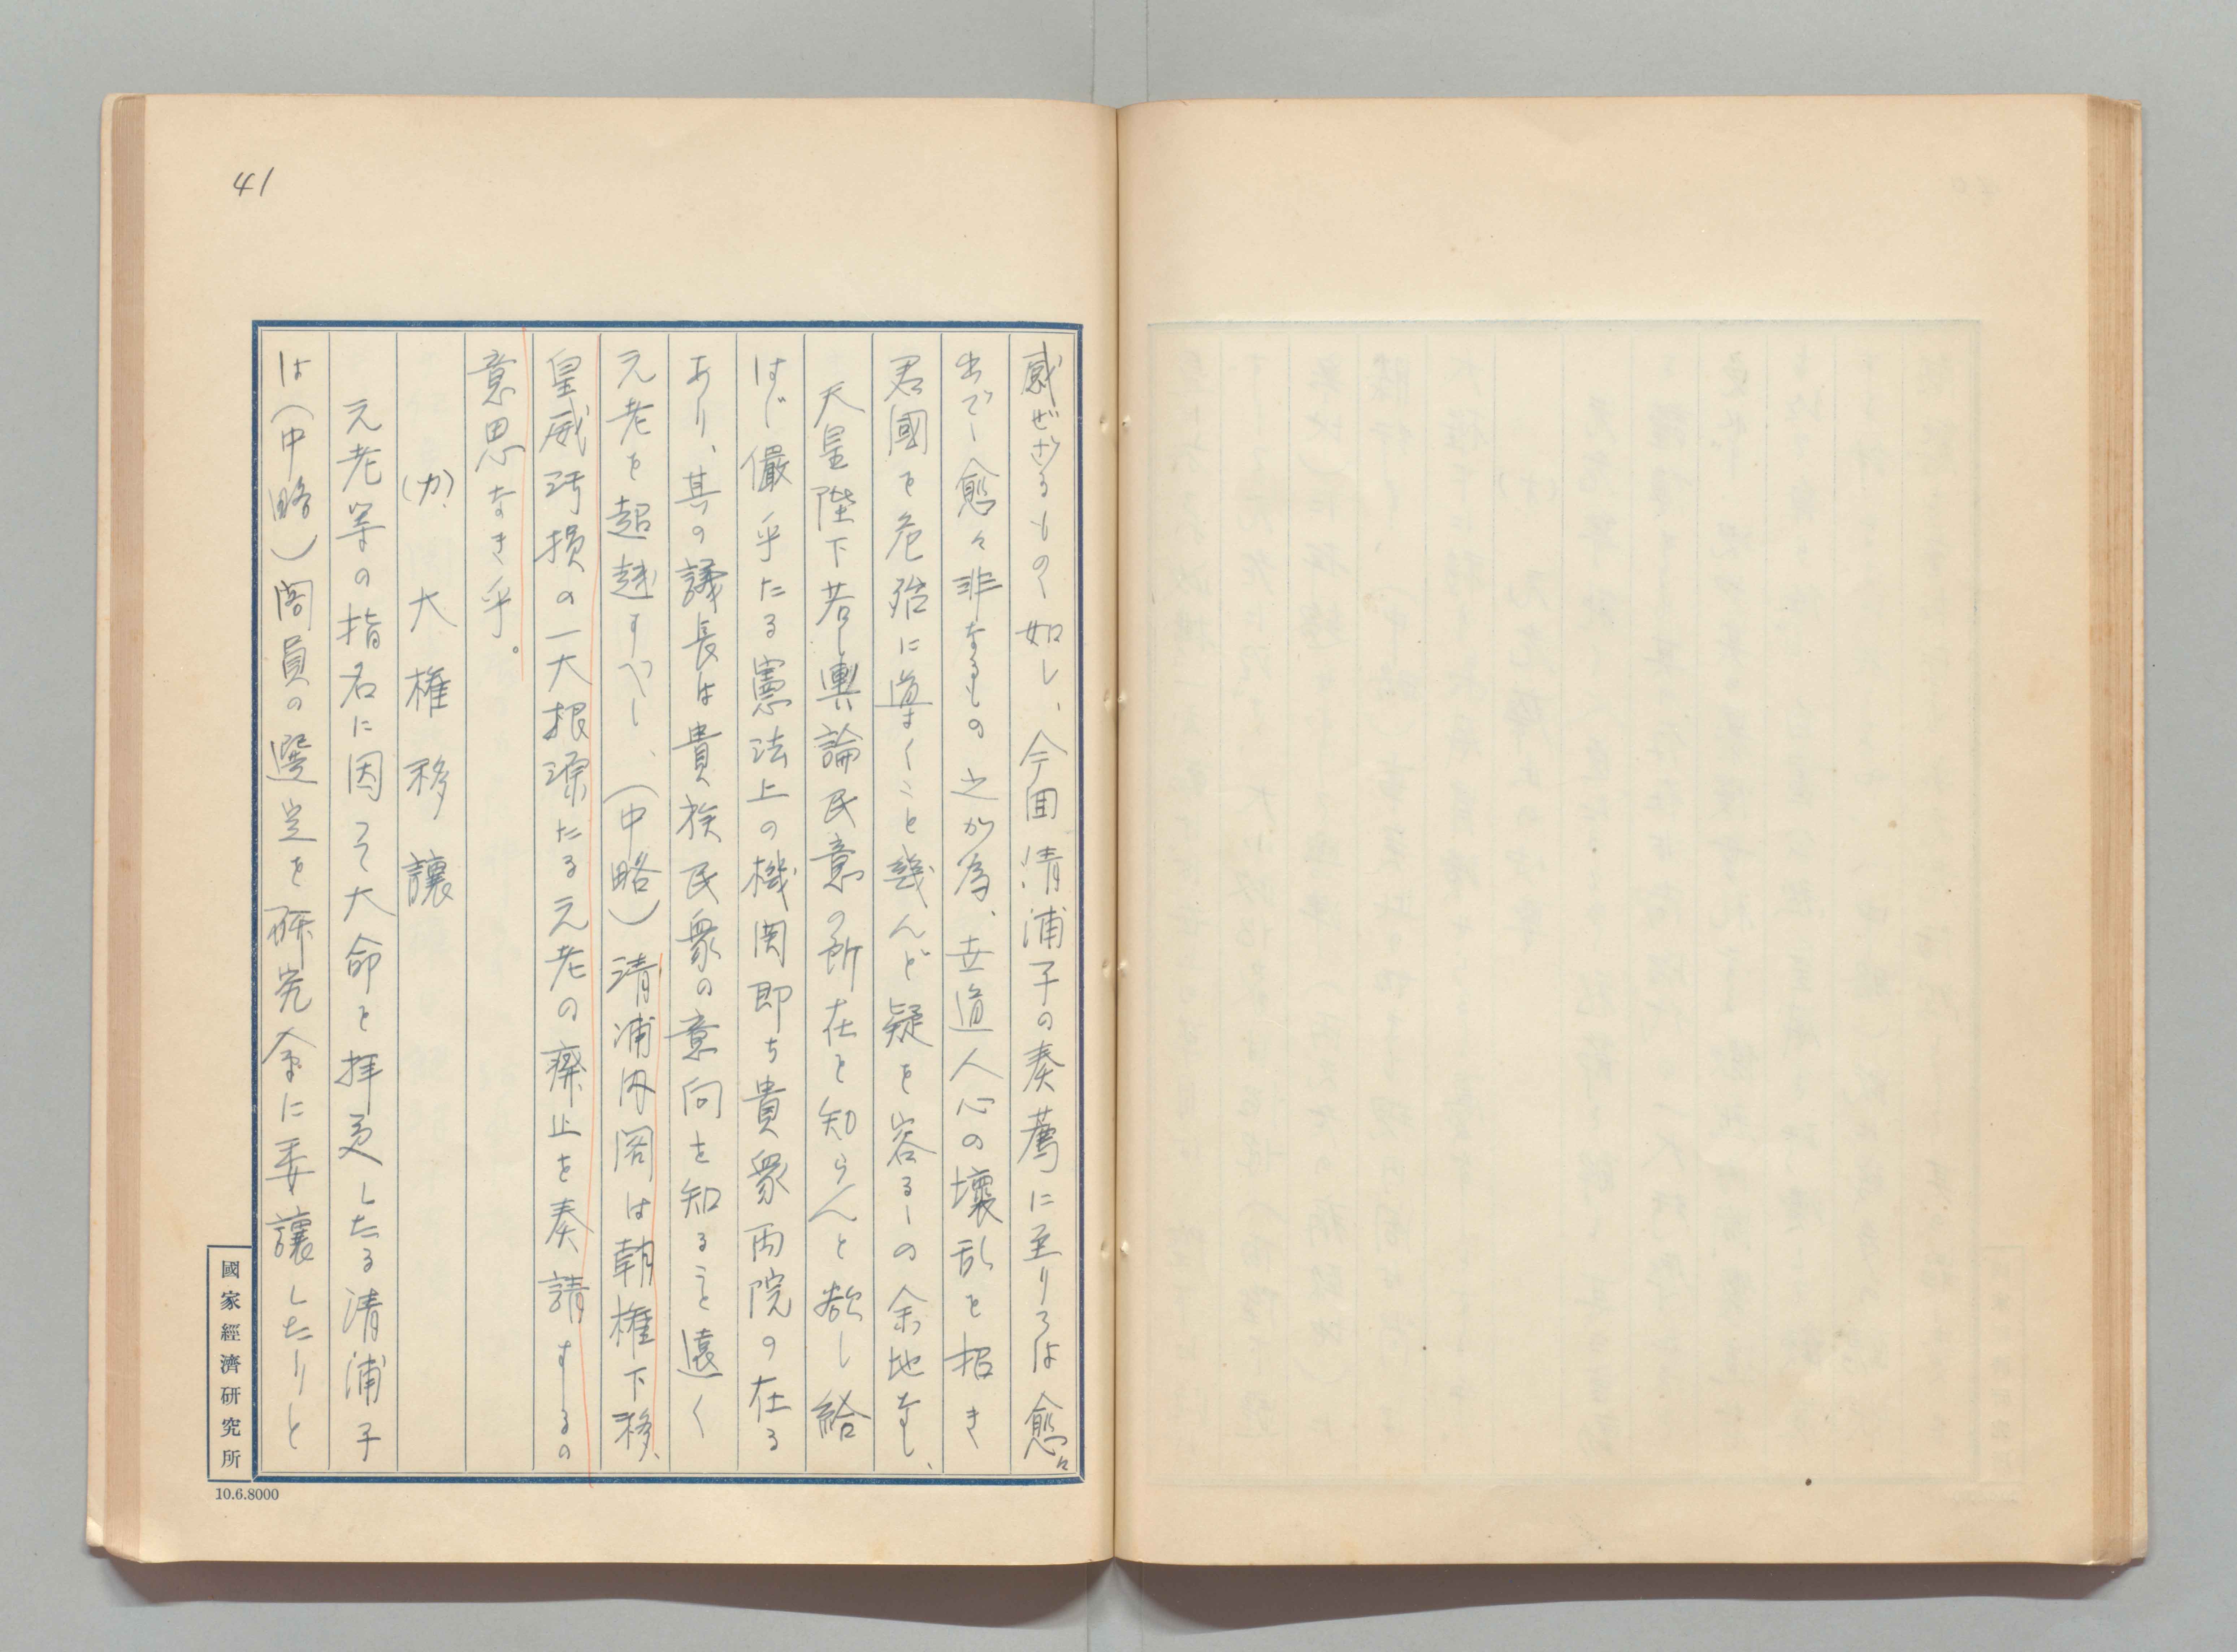 41
感ぜざるもの〻如し、今回清浦子の奏薦に至りては愈々
出でゝ愈々非なるもの之が為、世道人心の壊乱を招き
君國を危殆に導くこと幾んど疑を容るゝの余地なし、
天皇陛下若し輿論民意の所在を知らんと欲し給
はゞ儼乎たる憲法上の機関即ち貴衆両院の在る
あり、其の議長は貴族民衆の意向を知ること遠く
元老を超越すべし、(中略)清浦内閣は朝権下移、
皇威汚損の一大根源たる元老の廃止を奏請するの
意思なき乎。
(カ) 大権移譲
元老等の指名に因て大命を拝受したる清浦子
は(中略)閣員の選定を研究会に委譲したりと
國家經濟研究所
10.6.8000